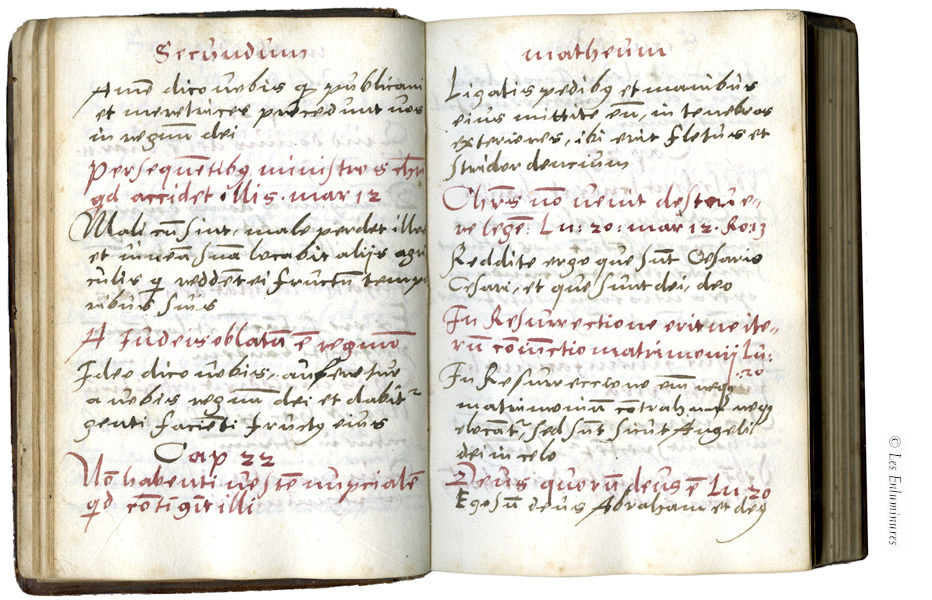 Secundum
Amē dico uobis q publicani
et meretrices precedunt uos
in regnū dei
Persequētibq ministros chri
qd accidet illis. mar 12
Mali cū sint, male perdet illos
et uineā suā locabit alijs agri
culis q reddēt ei fructū tempo
ribus suis
A Iudeis oblatū ē regnū
Ideo dico uobis, auferetur
a uobis regnū dei et dabit
genti faciēti fructq eius
Cap 22
Nō habenti uestē nupcialē
qd cōtigit illi
matheum
Ligatis pedibq et manibus
eius mittite eū, in tenebras
exteriores, ibi erit fletus et
stridor dencium
Chrs nō uenit destrue,,
re legē: Lu: 20: mar 12. Ro: 13
Reddite ergo que sūt Cesaris
Cesari, et que sunt dei, deo
In Resurrectione erit ne ite,,
rū cōiūctio matrimonij Lu:
.20
In Resureccione em̄ neqq
matrimoniū cōtrahūt neqq
elocāt, sed sūt sicut Angeli
dei in celo
Deus quorū deus ē Lu. 20
Ego sū deus Abraham et deq
© Les Enluminures